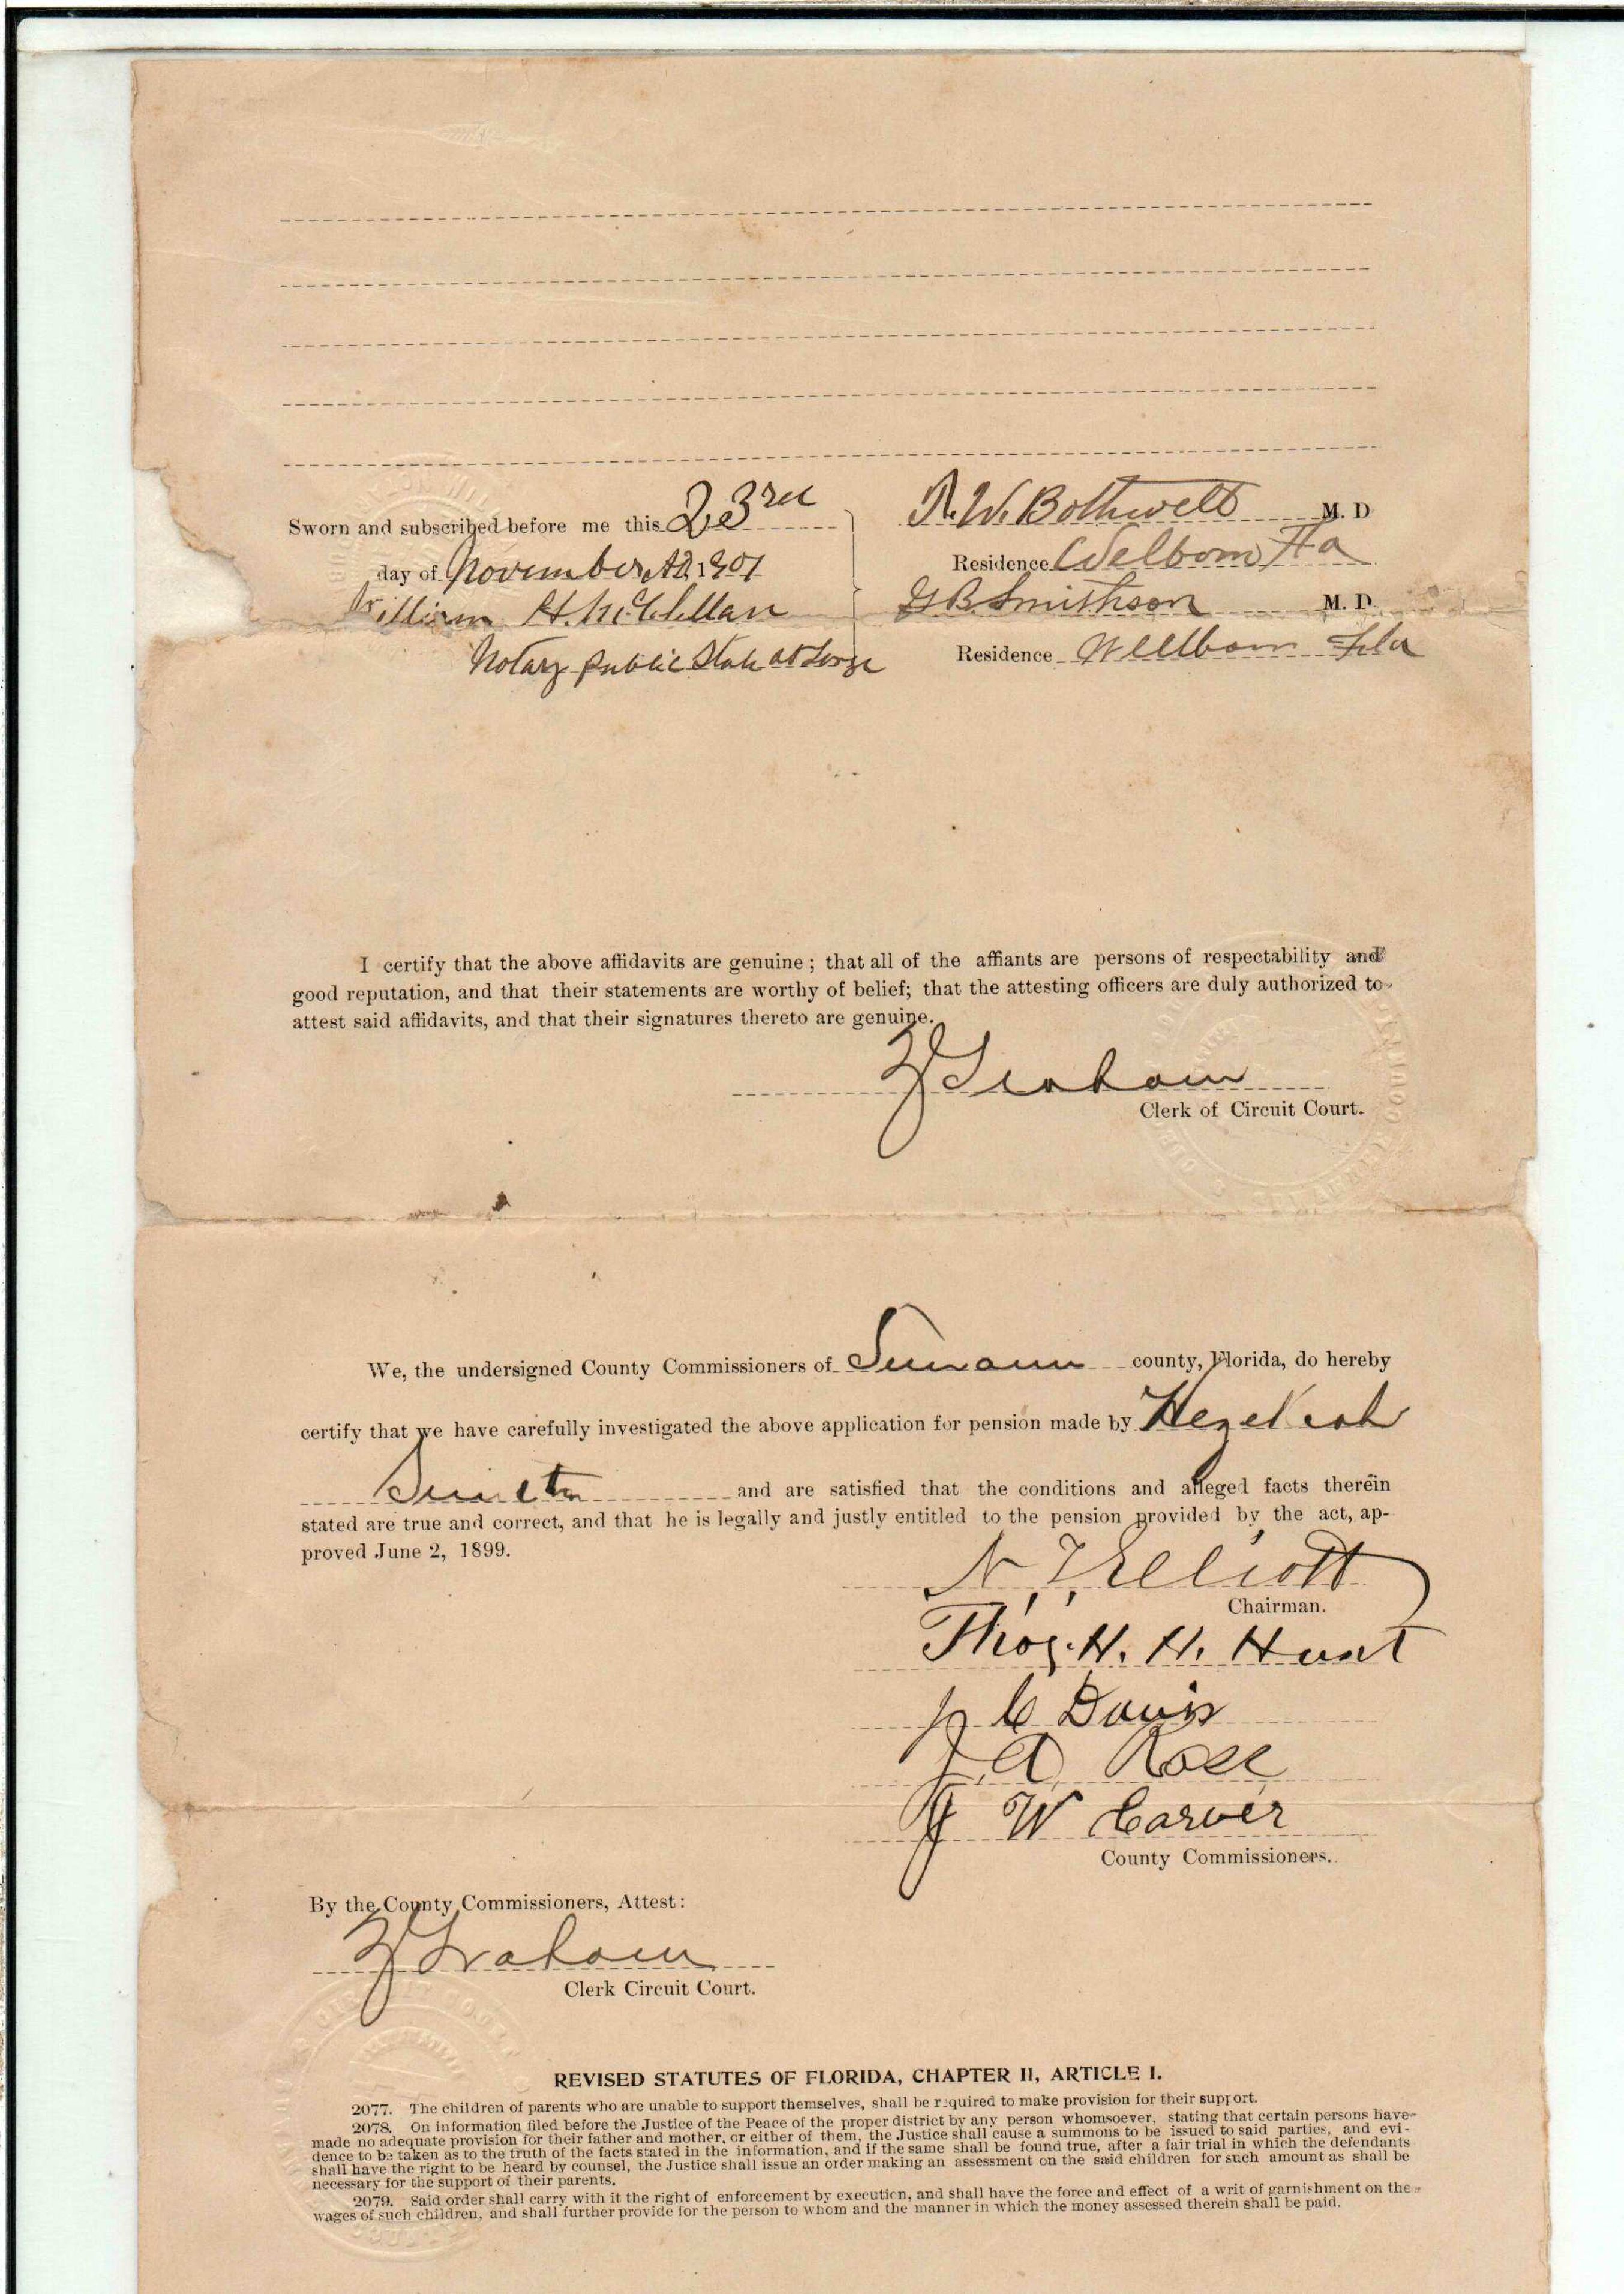 Sworn and subscribed before me this 23rd
day of November AD 1901
William H. McClellan
Notary public State at Large
R. W. Bothwell M. D
Residence Welborn Fla
G B Smithson M. D.
Residence Wellborn Fla
I certify that the above affidavits are genuine; that all of the affiants are persons of respectability and
good reputation, and that their statements are worthy of belief; that the attesting officers are duly authorized to
attest said affidavits, and that their signatures thereto are genuine.
Graham
Clerk of Circuit Court.
We, the undersigned County Commissioners of Suwannee county, Florida, do hereby
certify that we have carefully investigated the above application for pension made by Hezekiah
and are satisfied that the conditions and alleged facts therein
stated are true and correct, and that he is legally and justly entitled to the pension provided by the act, ap-
proved June 2, 1899.
N. T. Elliott
Chairman.
Thos. H. H. Hunt
J C Davis
J. A. Ross
J W Carver
County Commissioners.
By the County Commissioners, Attest:
Graham
Clerk Circuit Court.
REVISED STATUTES OF FLORIDA, CHAPTER II, ARTICLE I.
2077. The children of parents who are unable to support themselves, shall be required to make provision for their support.
2078. On information filed before the Justice of the Peace of the proper district by any person whomsoever, stating that certain persons have
made no adequate provision for their father and mother, or either of them, the Justice shall cause a summons to be issued to said parties, and evi-
dence to be taken as to the truth of the facts stated in the information, and if the same shall be found true, after a fair trial in which the defendants
shall have the right to be heard by counsel, the Justice shall issue an order making an assessment on the said children for such amount as shall be
necessary for the support of their parents.
2079. Said order shall carry with it the right of enforcement by execution, and shall have the force and effect of a writ of garnishment on the
wages of such children, and shall further provide for the person to whom and the manner in which the money assessed therein shall be paid.